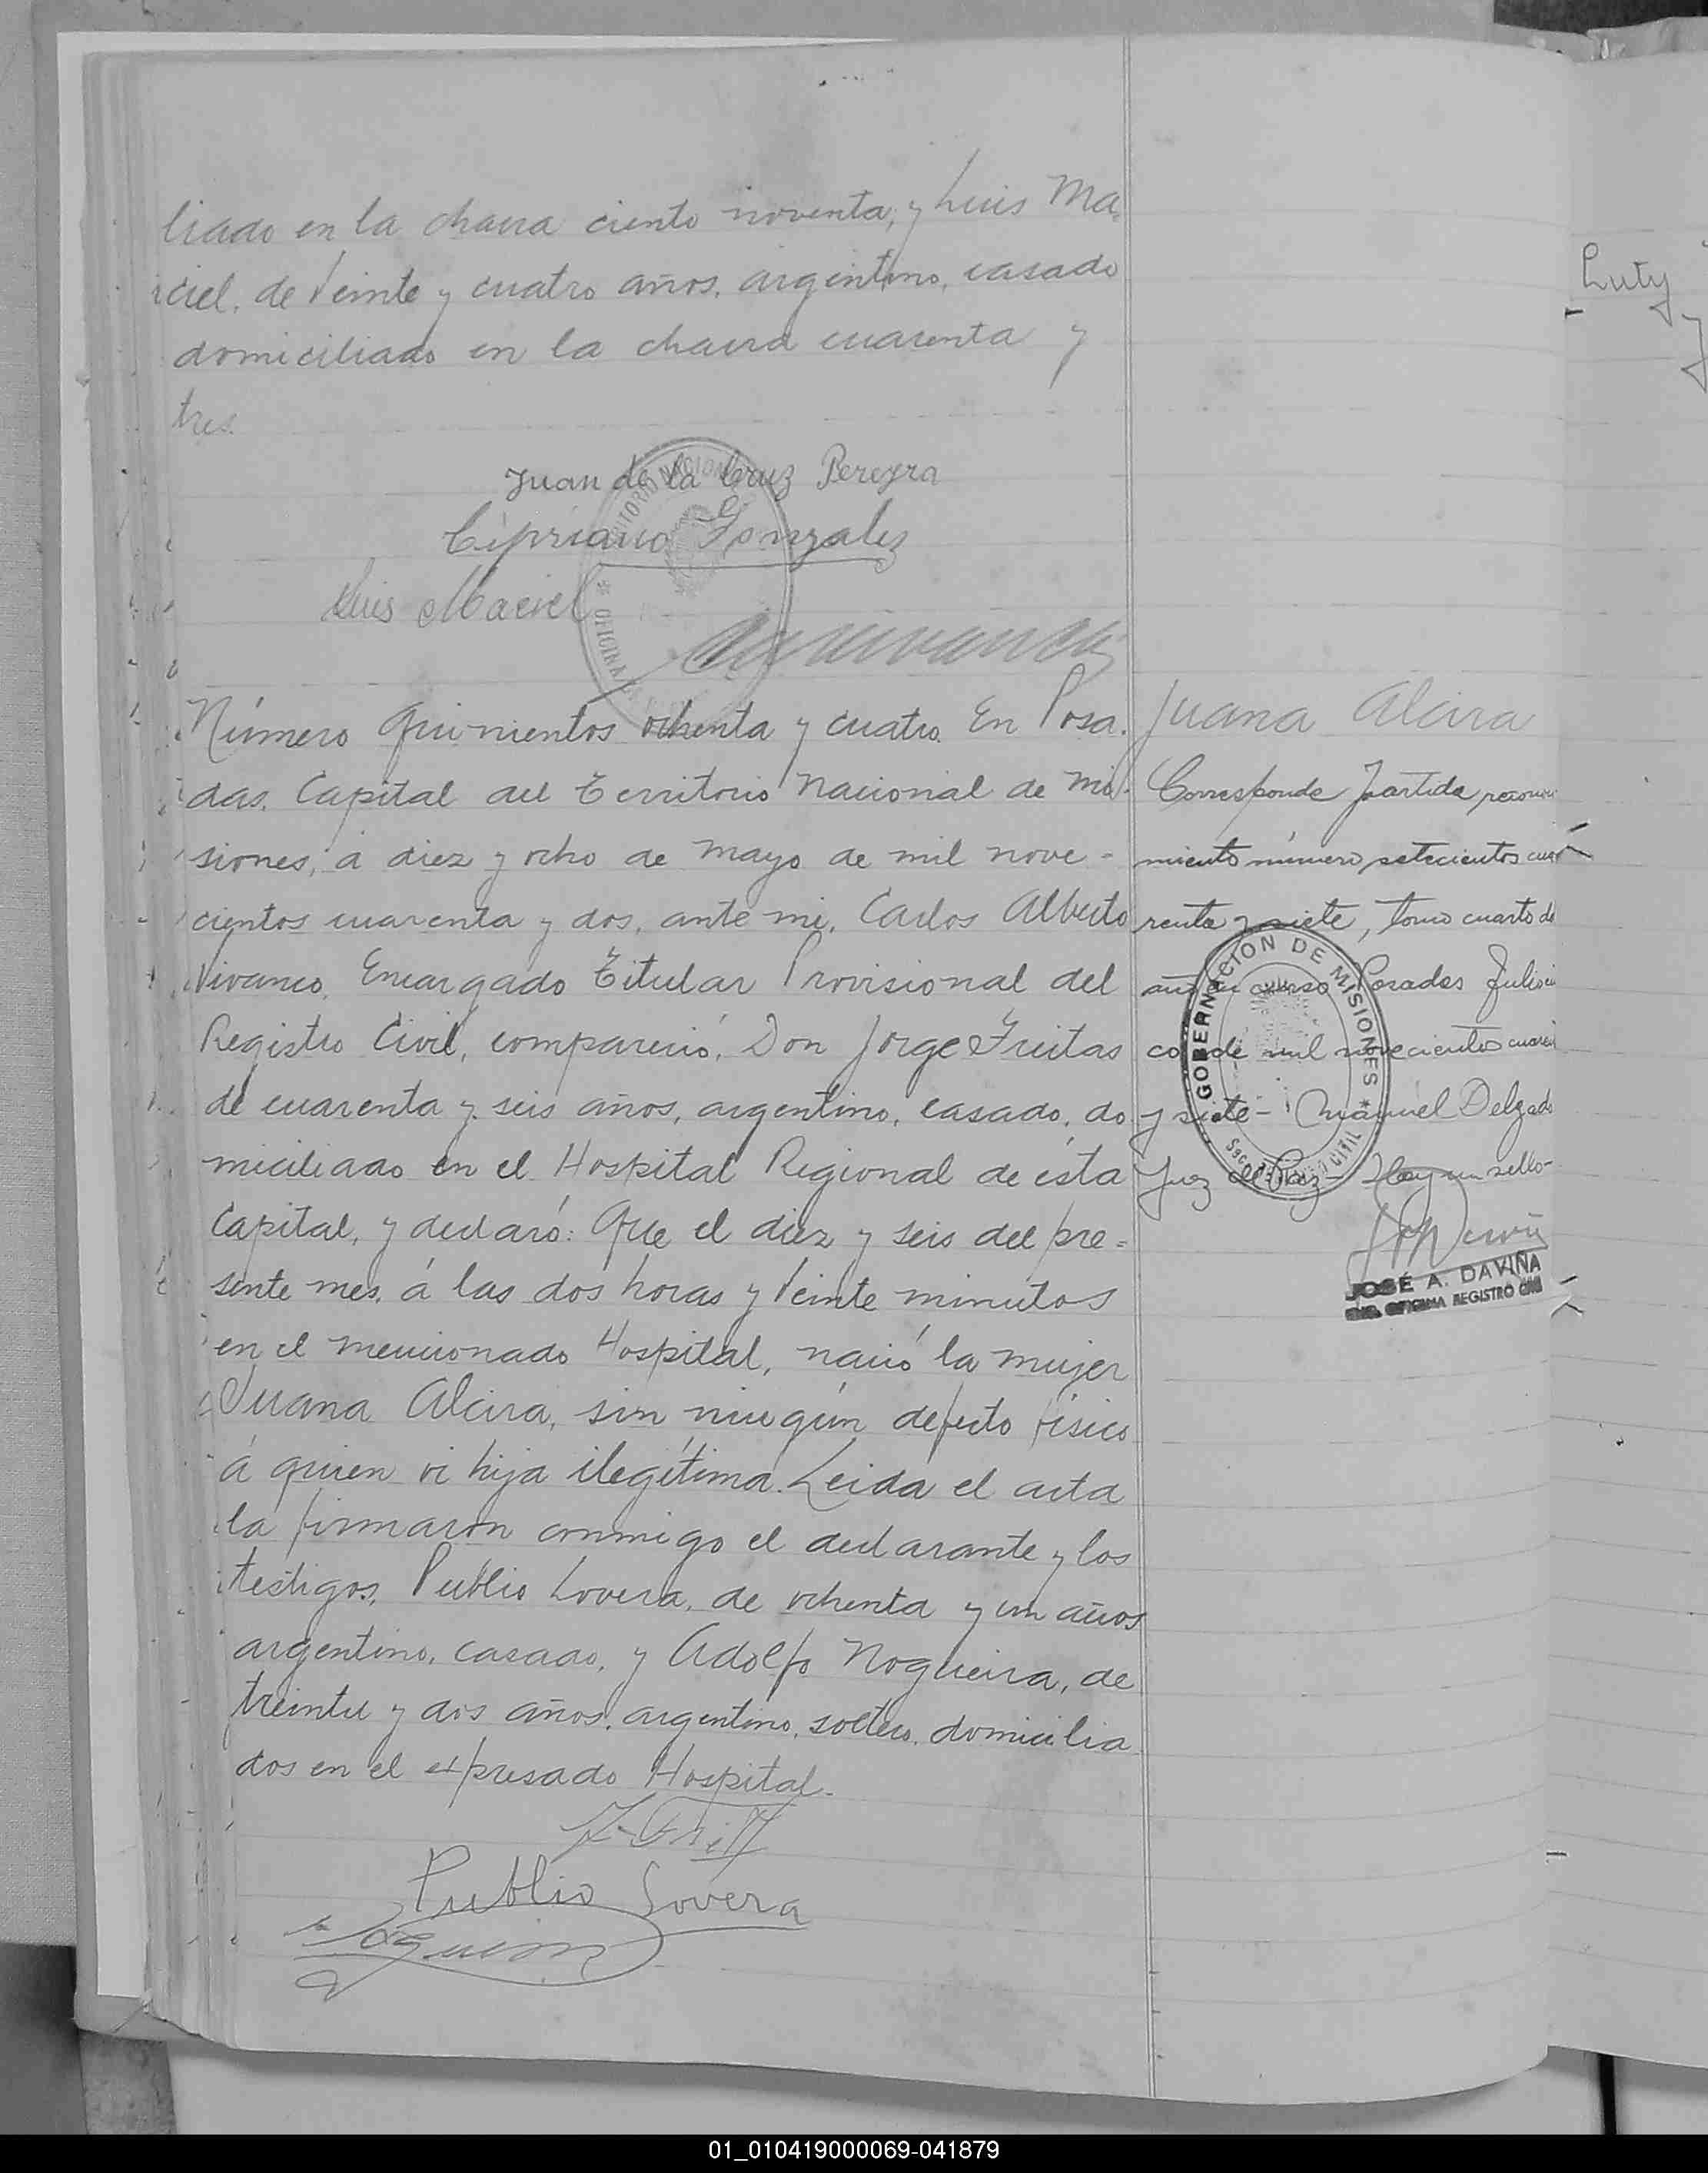 liado en la chacra ciento noventa, y Luis Ma-
ciel, de veinte y cuatro años, argentino, casado
domiciliado en la chacra cuarenta y
tres.
Juan de la Cruz Pereyra
Cipriano Gonzalez
Luis Maciel
Número quinientos ochenta y cuatro. En Posa-
das, Capital del Territorio Nacional de Mi-
siones, á diez y ocho de mayo de mil nove-
cientos cuarenta y dos, ante mi, Carlos Alberto
Vivanco, Encargado Titular Provisional del
Registro Civil, compareció, Don Jorge Freitas
de cuarenta y seis años, argentino, casado, do
miciliado en el Hospital Regional de ésta
Capital, y declaró: Que el diez y seis del pre-
sente mes, á las dos horas y veinte minutos
en el mencionado Hospital, nació la mujer
Juana Alcira, sin ningún defecto físico
á quien vi hija ilegítima. Leida el acta
la firmaron conmigo el declarante y los
testigos, Publio Lovera, de ochenta y un años
argentino, casado, y Adolfo Nogueira, de
treinta y dos años, argentino, soltero, domicilia
dos en el expresado Hospital.
Publio Lovera
Juana Alcira
Corresponde Partida reconoci
miento número setecientos cua
renta y siete, tomo cuarto del
año en curso Posadas Julio
de mil novecientos cuaren
y siete - Manuel Delgado
Juez de Paz - Hay un sello -
GOBERNACION DE MISIONES
JOSÉ A. DAVIÑA
OFICINA REGISTRO CIVIL
Luty
01_010419000069-041879